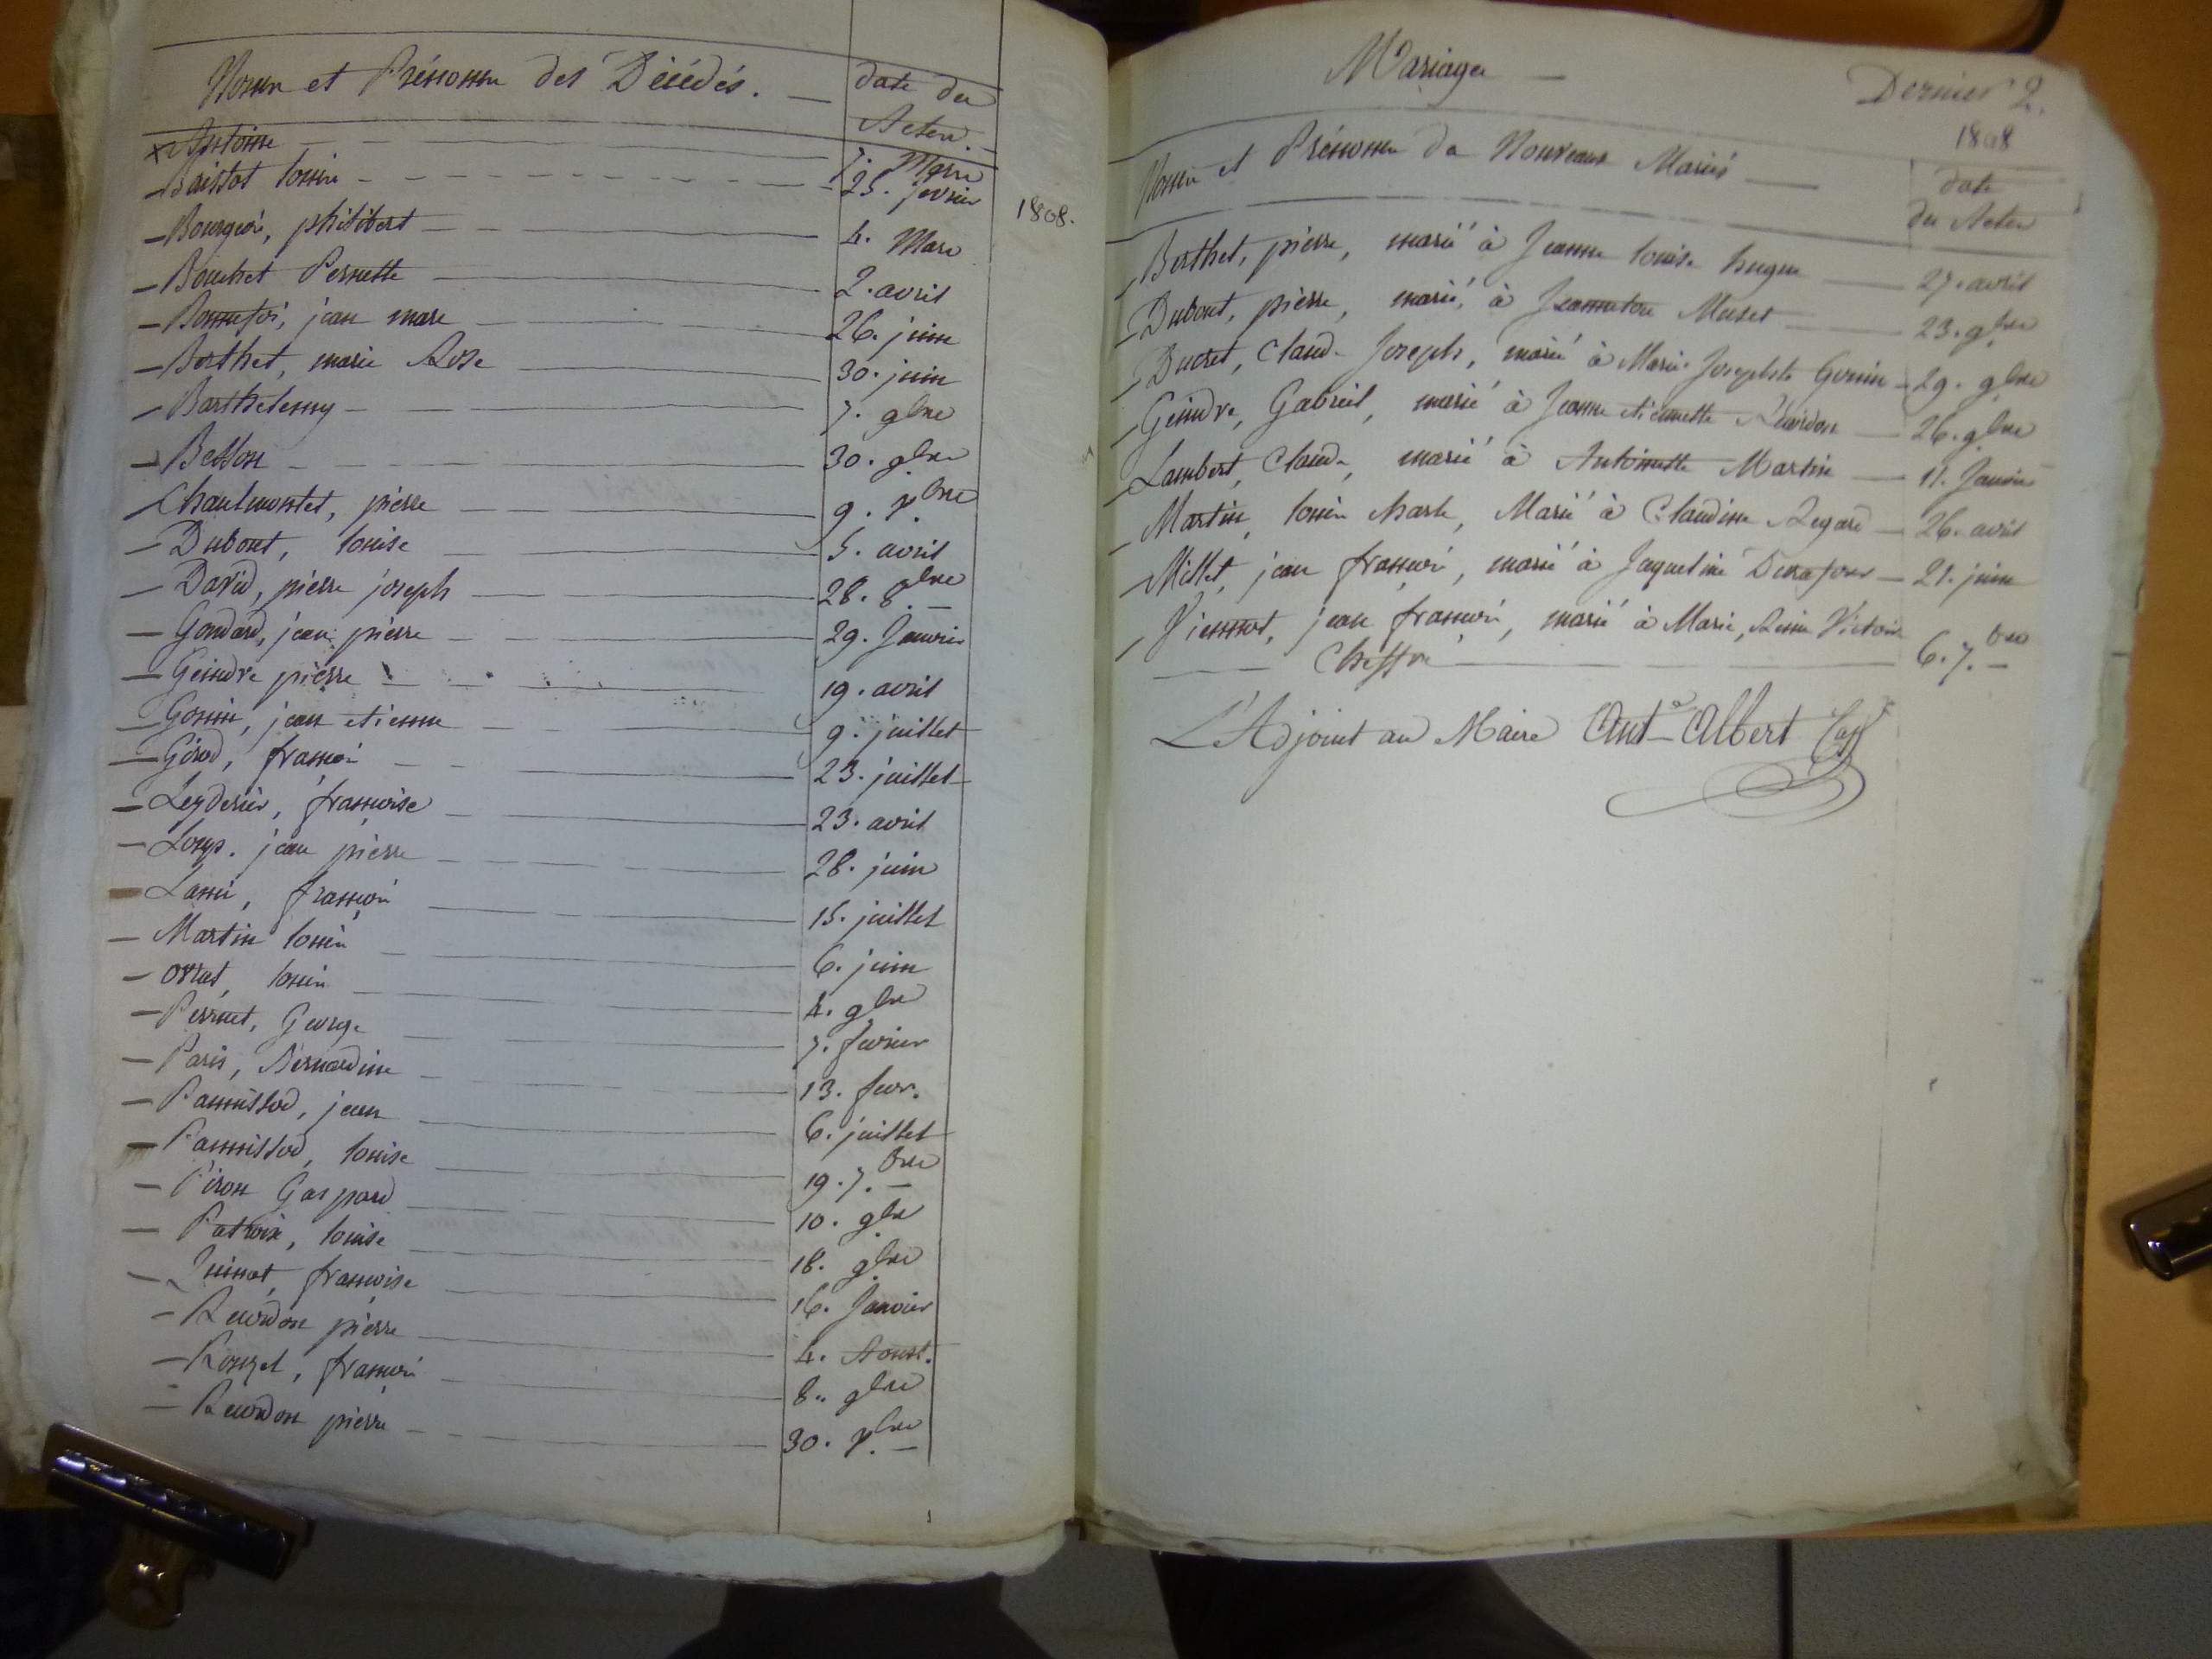 Noms et Prénoms des Décédés. — date des
Actes.
Antoine — 7. Mars
Baissat louise — 25. fevrier
1808.
Bourgeois, philibert — 4. Mars
Bouchet Pernette — 2. avril
Bonnefoi, jean marc — 26. juin
Berthet, marie Rose — 30. juin
Barthelemy — 7. 9bre
Besson — 30. 9bre
Chaulmontet, pierre — 9. Xbre
Dubout, louise — 5. avril
David, pierre joseph — 28. 8bre
Goudard, jean pierre — 29. Janvier
Geindre pierre — 19. avril
Gonin, jean etienne — 9. juillet
Girod, françois — 23. juillet
Leyderier, françoise — 23. avril
jean pierre — 28. juin
françois — 15. juillet
Martin louis — 6. juin
Orsat, louis — 4. 9bre
Perruet, George — 7. fevrier
Paris, Bernardine — 13. fevr.
Pannissod, jean — 6. juillet
Pannissod, louise — 19. 7.bre
Piron Gaspard — 10. 9bre
Patroix, louise — 18. 9bre
Quinat, françoise — 16. Janvier
Reverdon pierre — 4. Aoust.
Rouget, françois — 8. 9bre
Reverdon pierre — 30. Xbre
Mariages —
Dernier 2.
1808
Noms et Prénoms des Nouveaux Mariés — date
des Actes
Berthet, pierre, marié à Jeanne louise hugue — 27. avril
Dubout, pierre, marié, à Jeanneton Muset — 23. 9bre
Ducret, Claude Joseph, marié à Marie Josephte Gonin — 29. 9bre
Geindre, Gabriel, marié à Jeanne etiennette — 26. 9bre
Lambert, Claude, marié à Antoinette Martin — 11. Janvier
Martin, louis charle, Marié à Claudine Regard — 26. avril
Millet, jean françois, marié à Jaqueline — 21. juin
Viennot, jean françois, marié à Marie, Reine Victoire
Cheffre — 6. 7.bre
L'Adjoint au Maire Ant.e Albert